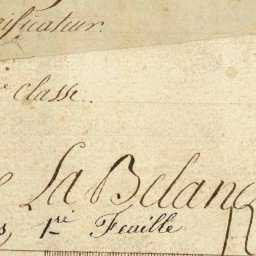 ificateur.
Classe.
La Belan
1re Feuille